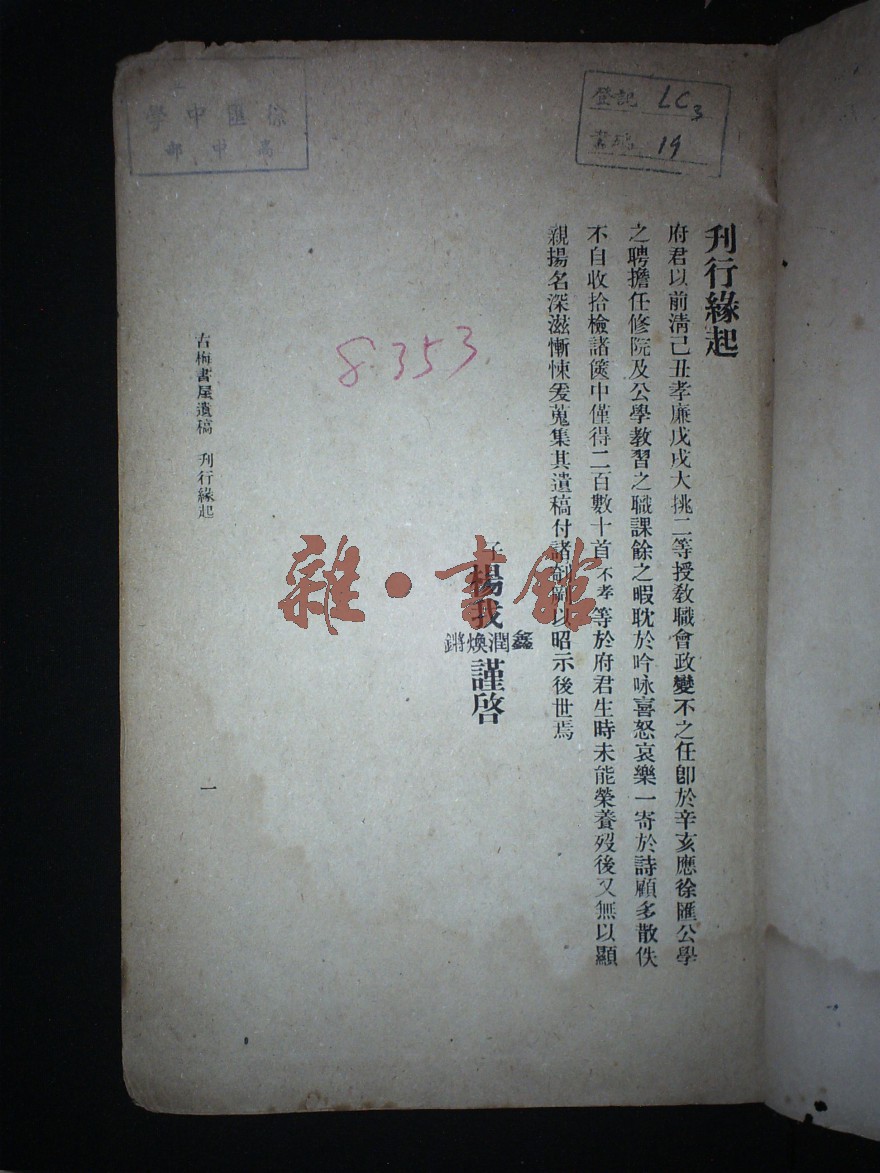 徐匯中學
高中部
登記 LC3
書碼 19
刊行緣起
府君以前淸己丑孝廉戊戌大挑二等授敎職會政變不之任卽於辛亥應徐匯公學
之聘擔任修院及公學敎習之職課餘之暇耽於吟咏喜怒哀樂一寄於詩顧多散佚
不自收拾檢諸篋中僅得二百數十首不孝等於府君生時未能榮養歿後又無以顯
親揚名深滋慚悚爰蒐集其遺稿付諸剞劂以昭示後世焉
子楊我鑫潤煥鏘謹啓
8353
古梅書屋遺稿 刊行緣起
一
雜·書館